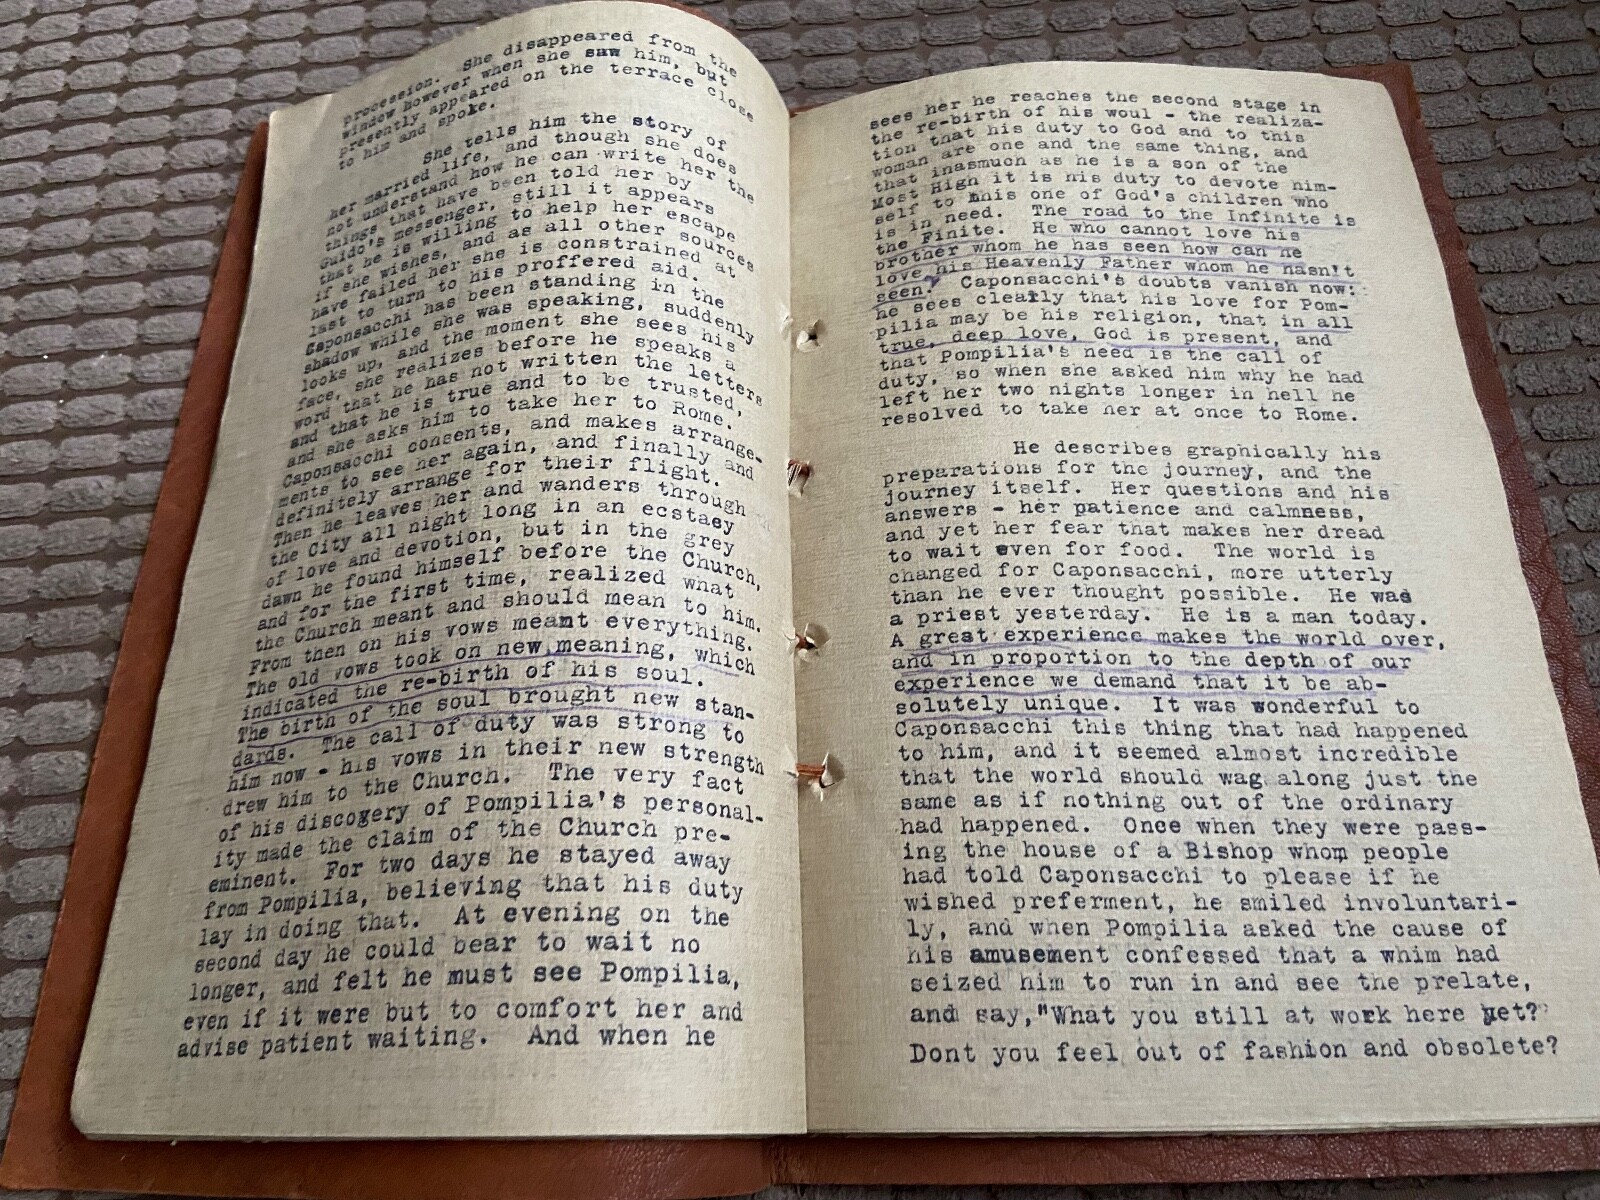 procession. She disappeared from the
window however when she saw him, but
presently appeared on the terrace close
to him and spoke.
She tells him the story of
her married life, and though she does
not understand how he can write her the
things that have been told her by
Guido's messenger, still it appears
that he is willing to help her escape
if she wishes, and as all other sources
have failed her she is constrained at
last to turn to his proffered aid.
Caponsacchi has been standing in the
shadow while she was speaking, suddenly
looks up, and the moment she sees his
face, she realizes before he speaks a
word that he has not written the letters
and that he is true and to be trusted,
and she asks him to take her to Rome.
Caponsacchi consents, and makes arrange-
ments to see her again, and finally and
definitely arrange for their flight.
Then he leaves her and wanders through
the City all night long in an ecstasy
of love and devotion, but in the grey
dawn he found himself before the Church,
and for the first time, realized what
the Church meant and should mean to him.
From then on his vows meant everything.
The old vows took on new meaning, which
indicated the re-birth of his soul.
The birth of the soul brought new stan-
dards. The call of duty was strong to
him now - his vows in their new strength
drew him to the Church. The very fact
of his discogery of Pompilia's personal-
ity made the claim of the Church pre-
eminent. For two days he stayed away
from Pompilia, believing that his duty
lay in doing that. At evening on the
second day he could bear to wait no
longer, and felt he must see Pompilia,
even if it were but to comfort her and
advise patient waiting. And when he
sees her he reaches the second stage in
the re-birth of his woul - the realiza-
tion that his duty to God and to this
woman are one and the same thing, and
that inasmuch as he is a son of the
Most High it is his duty to devote him-
self to this one of God's children who
is in need. The road to the Infinite is
the Finite. He who cannot love his
brother whom he has seen how can he
love his Heavenly Father whom he hasn't
seen? Caponsacchi's doubts vanish now:
he sees clearly that his love for Pom-
pilia may be his religion, that in all
true, deep love, God is present, and
that Pompilia's need is the call of
duty, so when she asked him why he had
left her two nights longer in hell he
resolved to take her at once to Rome.
He describes graphically his
preparations for the journey, and the
journey itself. Her questions and his
answers - her patience and calmness,
and yet her fear that makes her dread
to wait even for food. The world is
changed for Caponsacchi, more utterly
than he ever thought possible. He was
a priest yesterday. He is a man today.
A great experience makes the world over,
and in proportion to the depth of our
experience we demand that it be ab-
solutely unique. It was wonderful to
Caponsacchi this thing that had happened
to him, and it seemed almost incredible
that the world should wag along just the
same as if nothing out of the ordinary
had happened. Once when they were pass-
ing the house of a Bishop whom people
had told Caponsacchi to please if he
wished preferment, he smiled involuntari-
ly, and when Pompilia asked the cause of
his amusement confessed that a whim had
seized him to run in and see the prelate,
and say,"What you still at work here yet?"
Dont you feel out of fashion and obsolete?